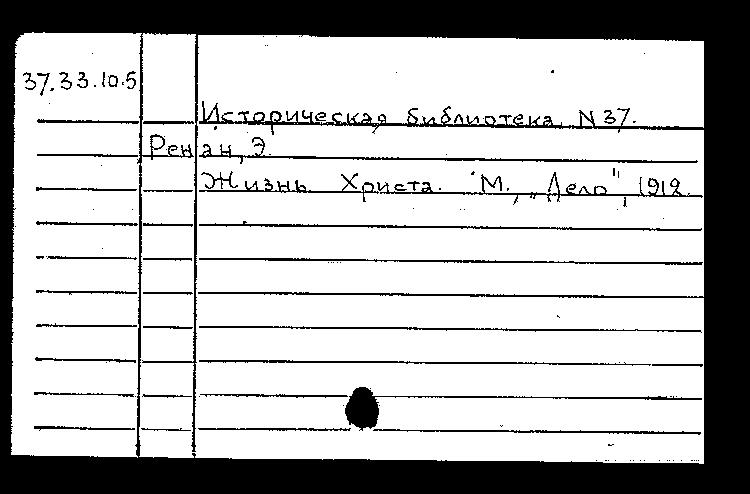 37.33.10.5
Историческая библиотека N 37.
Ренан, Э.
Жизнь Христа. М., „Дело", 1912.